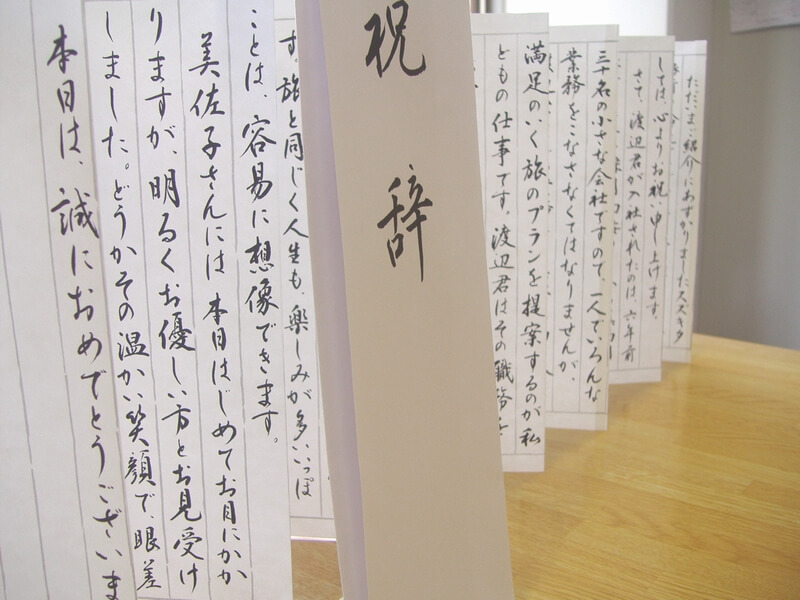 ただいまご紹介にあずかりましたスズキタ
しては、心よりお祝い申し上げます。
さて、渡辺君が入社されたのは、六年前
三十名の小さな会社ですので、一人でいろんな
業務をこなさなくてはなりませんが、
満足のいく旅のプランを提案するのが私
どもの仕事です。渡辺君はその職務を
祝辞
す。旅と同じく人生も、楽しみが多いいっぽ
ことは、容易に想像できます。
美佐子さんには本日はじめてお目にかか
りますが、明るくお優しい方とお見受け
しました。どうかその温かい笑顔で、眼差
本日は、誠におめでとうございま